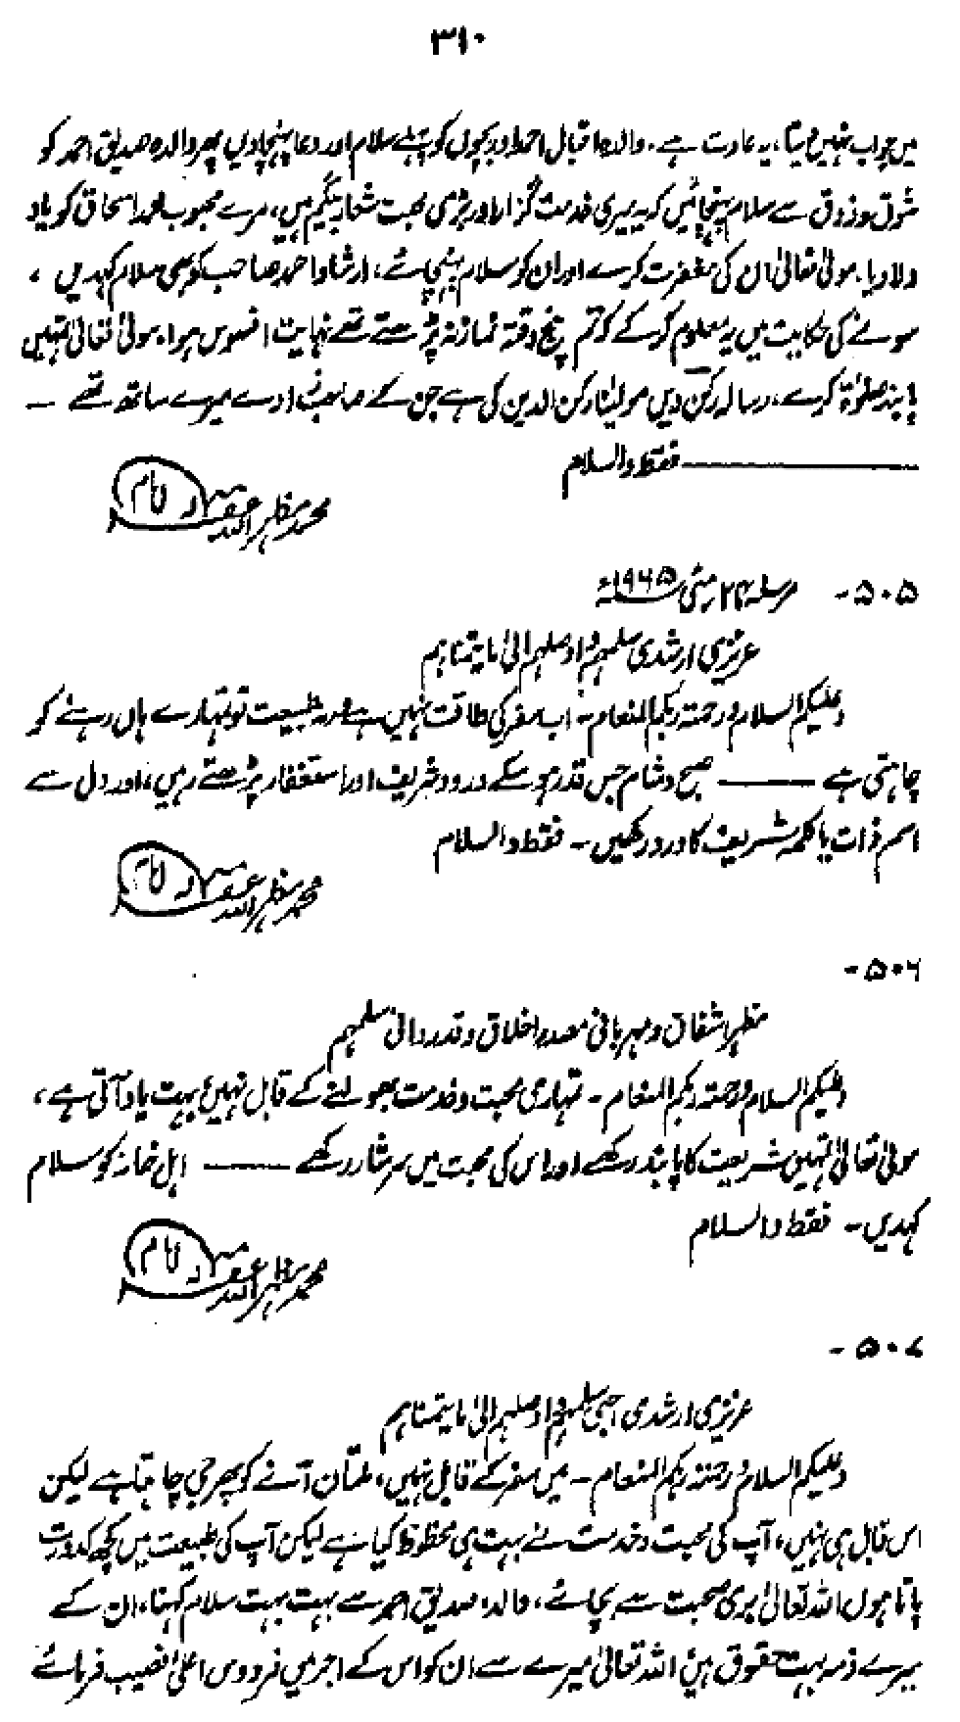 ۳۱۰
میں جواب نہیں دیتا، یہ عادت ہے۔ والدہ اقبال احمد اور بچوں کو پہلے سلام اور دعا پہنچادیں پھر والدہ صدیق احمد کو
شوق و ذوق سے سلام پہنچائیں کہ یہ میری خدمت گزار اور بڑی محبت شعار بیگم ہیں، میرے محبوب محمد اسحاق کو یاد
دلادیا۔ مولیٰ تعالیٰ ان کی مغفرت کرے اور ان کو سلام پہنچائے، ارشاد احمد صاحب کو بھی سلام کہدیں ،
سونے کی حکایت میں یہ معلوم کرکے کہ تم پنج وقتہ نماز نہ پڑھتے تھے نہایت افسوس ہوا۔ مولیٰ تعالیٰ تمہیں
پابند صلوٰۃ کرے، رسالہ رکن دیں مولینا رکن الدین کی ہے جن کے صاحبزادے میرے ساتھ تھے ـ
فقط والسلام
محمد مظہر اللہ عفرلہ امام
۵۰۵- مرسلہ ۲۴ مئی ۱۹۶۵ء
عزیزی ارشدی سلمہم واوصلہم الیٰ مایتمناہم
وعلیکم السلام ورحمتہ ربکم المنعام۔ اب سفر کی طاقت نہیں ہے ورنہ طبیعت تو تمہارے ہاں رہنے کو
چاہتی ہے ــــــ صبح و شام جس قدر ہوسکے درود شریف اور استغفار پڑھتے رہیں، اور دل سے
اسم ذات یا کلمہ شریف کا ورد رکھیں۔ فقط والسلام
محمد مظہر اللہ عفرلہ امام
۵۰۶-
مظہر اشفاق و مہربانی مصدر اخلاق و قدردانی سلمہم
وعلیکم السلام ورحمتہ ربکم المنعام۔ تمہاری محبت و خدمت بھولنے کے قابل نہیں، بہت یاد آتی ہے،
مولیٰ تعالیٰ تمہیں شریعت کا پابند رکھے اور اس کی محبت میں سرشار رکھے ــــــ اہل خانہ کو سلام
کہدیں۔ فقط والسلام
محمد مظہر اللہ عفرلہ امام
۵۰۷-
عزیزی ارشدی احبی سلمہم واوصلہم الیٰ مایتمناہم
وعلیکم السلام ورحمتہ ربکم المنعام۔ میں سفر کے قابل نہیں، ملتان آنے کو پھر جی چاہتا ہے لیکن
اس قابل ہی نہیں، آپ کی محبت و خدمت نے بہت ہی محظوظ کیا ہے لیکن آپ کی طبیعت میں کچھ کدورت
پاتا ہوں اللہ تعالیٰ بری صحبت سے بچائے، والدہ صدیق احمد سے بہت بہت سلام کہنا، ان کے
میرے ذمہ بہت حقوق ہیں اللہ تعالیٰ میرے سے ان کو اس کے اجر میں فردوس اعلیٰ نصیب فرمائے